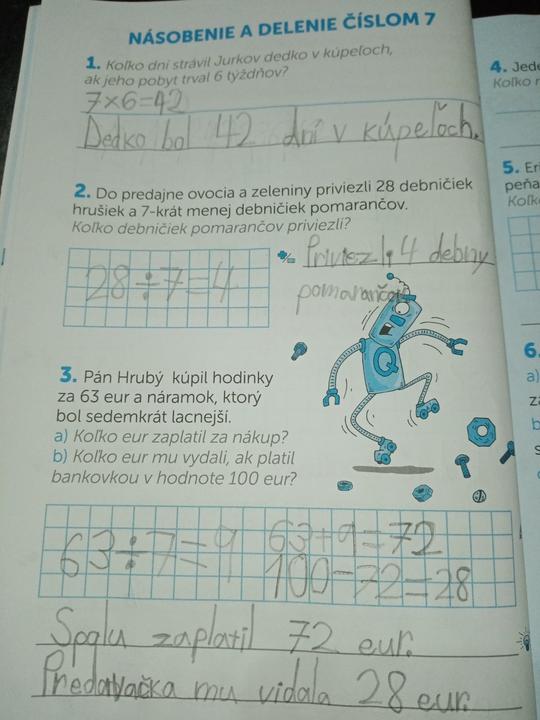 NÁSOBENIE A DELENIE ČÍSLOM 7
1. Koľko dní strávil Jurkov dedko v kúpeľoch,
ak jeho pobyt trval 6 týždňov?
7×6=42
Dedko bol 42 dní v kúpeľoch.
2. Do predajne ovocia a zeleniny priviezli 28 debničiek
hrušiek a 7-krát menej debničiek pomarančov.
Koľko debničiek pomarančov priviezli?
28÷7=4
Priviezli 4 debny
pomarančov
Q
3. Pán Hrubý kúpil hodinky
za 63 eur a náramok, ktorý
bol sedemkrát lacnejší.
a) Koľko eur zaplatil za nákup?
b) Koľko eur mu vydali, ak platil
bankovkou v hodnote 100 eur?
63÷7=9
63+9=72
100-72=28
Spolu zaplatil 72 eur.
Predavačka mu vidala 28 eur.
4. Jed
Koľko
5. Er
peňa
Koľk
6.
a)
b